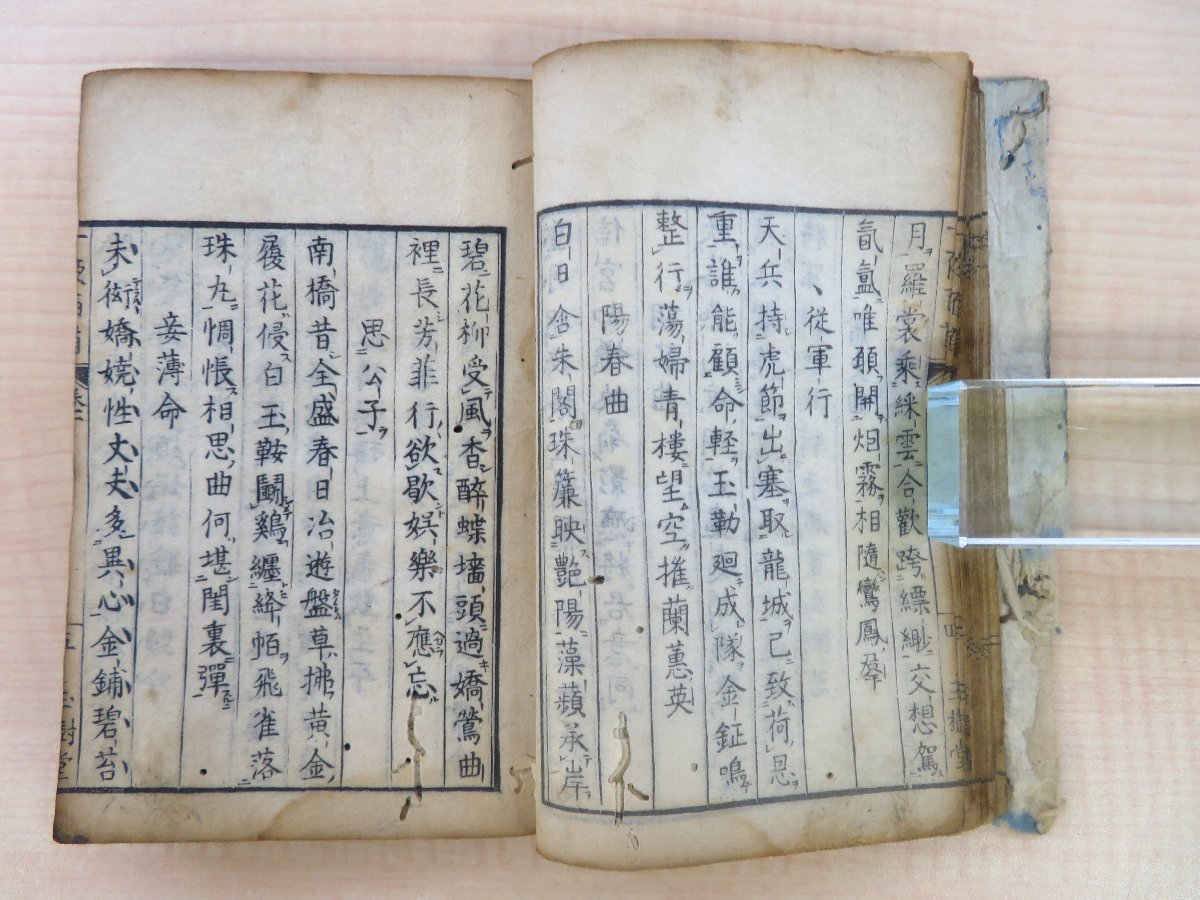 月羅裳乘綵雲合歡跨縹緲交想駕
氤氳唯頋開烟霧相隨鸞鳳羣
從軍行
天兵持虎節出塞取龍城已致荷恩
重誰能顧命輕玉勒廻成隊金鉦鳴
整行蕩婦青樓望空摧蘭蕙英
陽春曲
白日含朱閣珠簾映艶陽藻蘋承岸
碧花柳受風香醉蝶墻頭過嬌鶯曲
裡長芳菲行欲歇娯樂不應忘
思公子
南橋昔全盛春日冶遊盤草拂黄金
履花侵白玉鞍鬪鷄纒絳帕飛雀落
珠丸惆悵相思曲何堪閨裏彈
妾薄命
未衒嬌嬈性丈夫多異心金鋪碧苔
玉樹堂